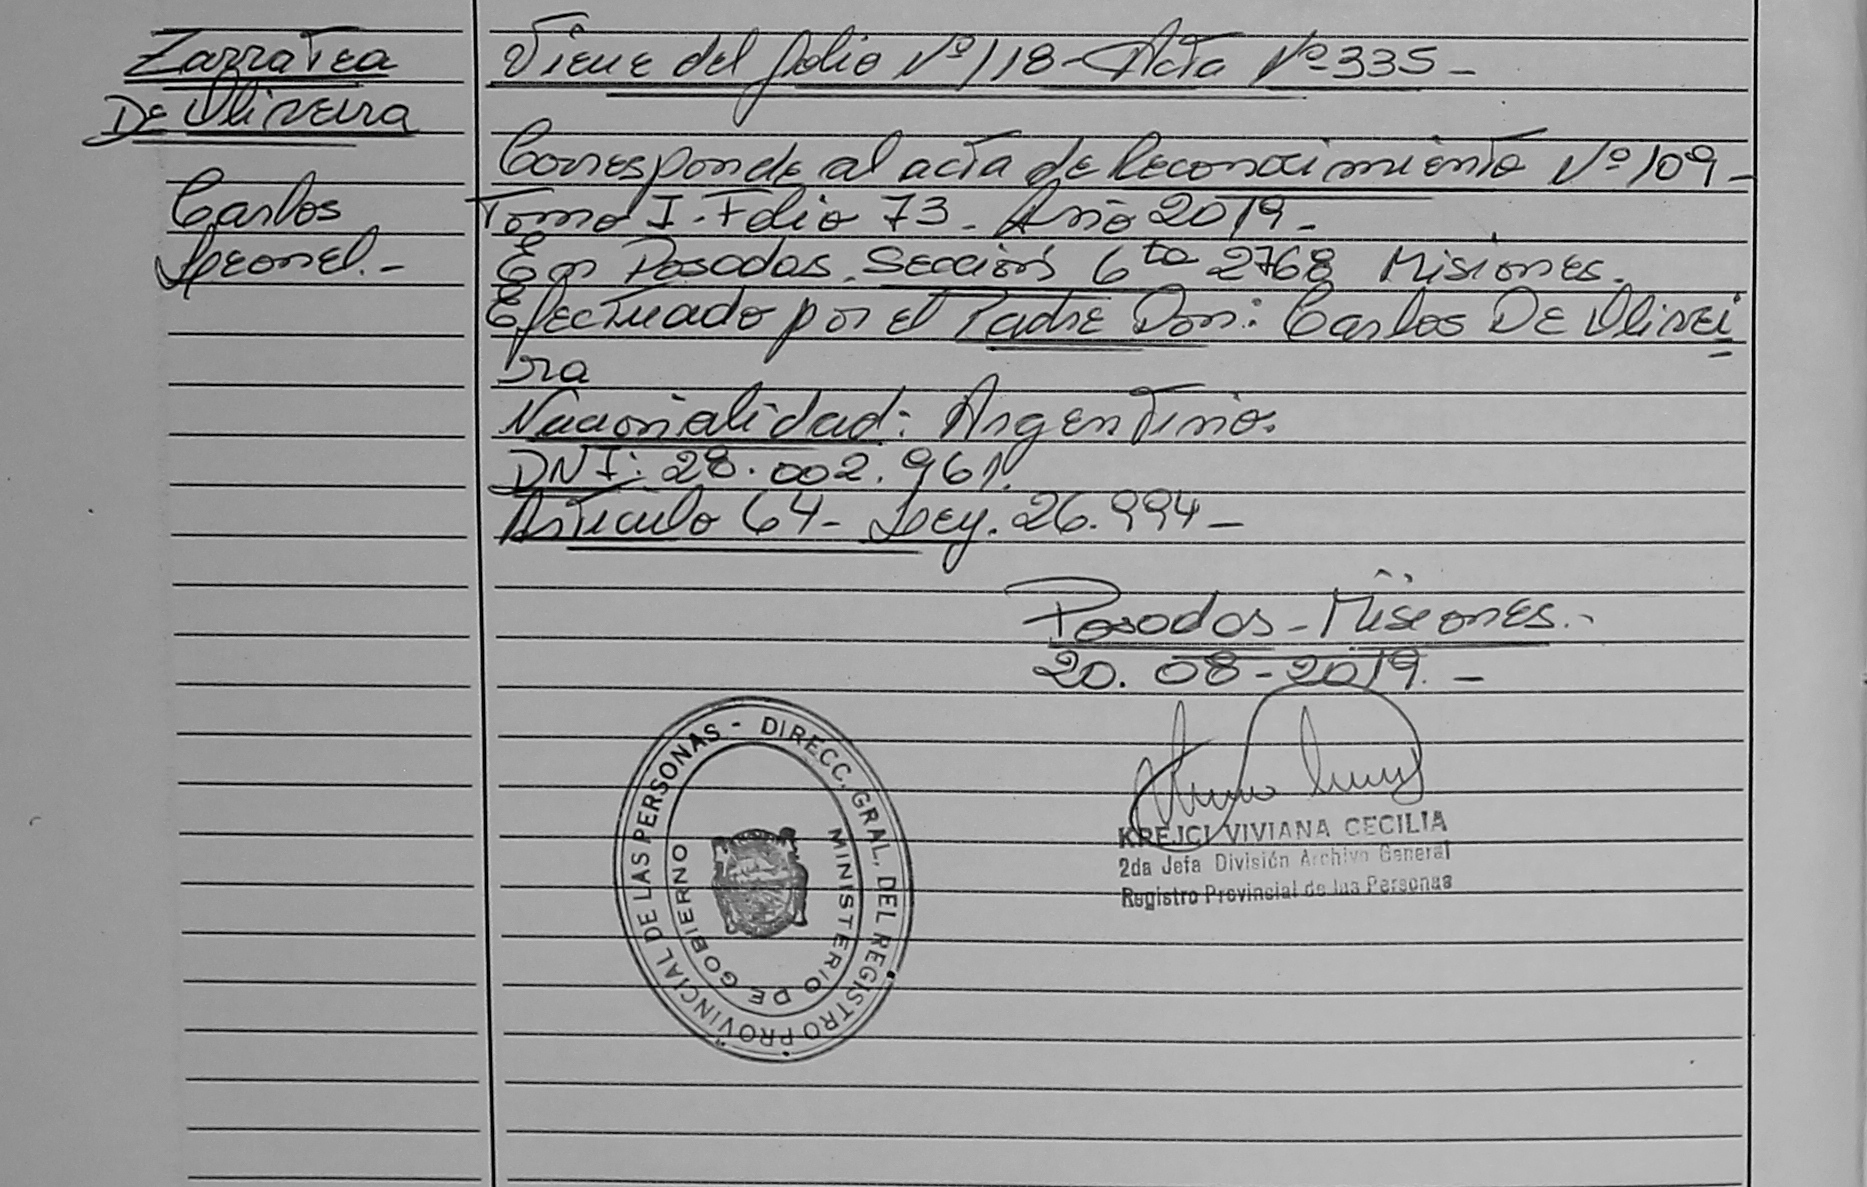 Zarratea
De Oliveira
Carlos
Leonel.-
Viene del folio Nº 118- Acta Nº 335-
Corresponde al acta de Reconocimiento Nº 109-
Tomo I. Folio 73- Año 2019-
En Posadas. Sección 6ta 2768 Misiones.
Efectuado por el Padre Don: Carlos De Olivei
ra
Nacionalidad: Argentino.
DNI: 28.002.961.
Artículo 64- Ley. 26.994-
Posadas- Misiones.-
20.08-2019.-
DIRECC. GRAL. DEL REGISTRO PROVINCIAL DE LAS PERSONAS -
MINISTERIO DE GOBIERNO
KREJCI VIVIANA CECILIA
2da Jefa División Archivo General
Registro Provincial de las Personas